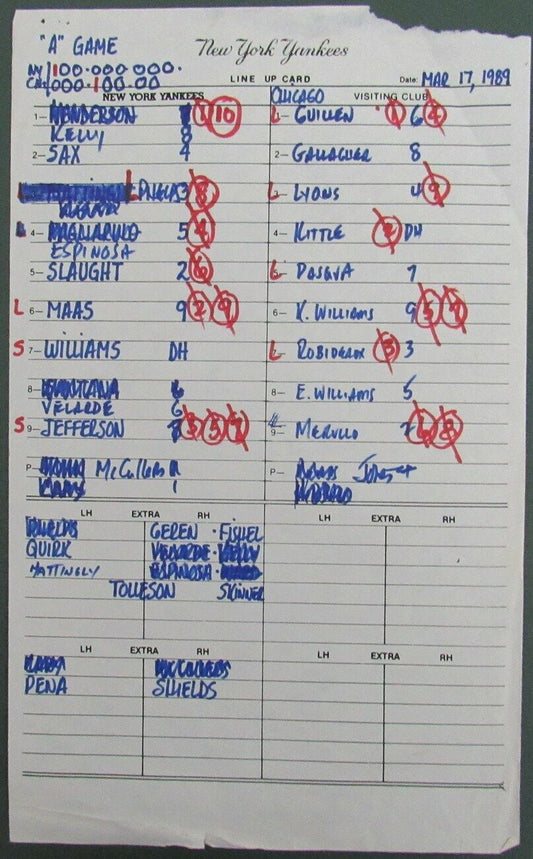 "A" GAME
New York Yankees
NY 100-000 000-
CHI 000-100-00
LINE UP CARD
Date: MAR 17, 1989
NEW YORK YANKEES
CHICAGO VISITING CLUB
1- HENDERSON 7 1 10
L GUILLEN 1 6 4
KELLY 8
2- SAX 4
2- GALLAGHER 8
MATTINGLY L PHELPS 3 8
L LYONS 4 9
4- PAGLIARULO 5 4
4- KITTLE 2 DH
ESPINOSA
5- SLAUGHT 2 6
L PASQUA 7
L 6- MAAS 9 2 9
6- K. WILLIAMS 9 5 7
S 7- WILLIAMS DH
L ROBIDEAUX 3 3
8- SANTANA 6
8- E. WILLIAMS 5
VELARDE 6
S 9- JEFFERSON 7 3 5 7
9- MERULLO 6 8
P- McCullers 1
P-
CARY 1
LH EXTRA RH
LH EXTRA RH
PHELPS GEREN - FISHEL
QUIRK VELARDE - KELLY
MATTINGLY ESPINOSA -
TOLLESON SKINNER
LH EXTRA RH
LH EXTRA RH
CARY McCULLERS
PENA SHIELDS